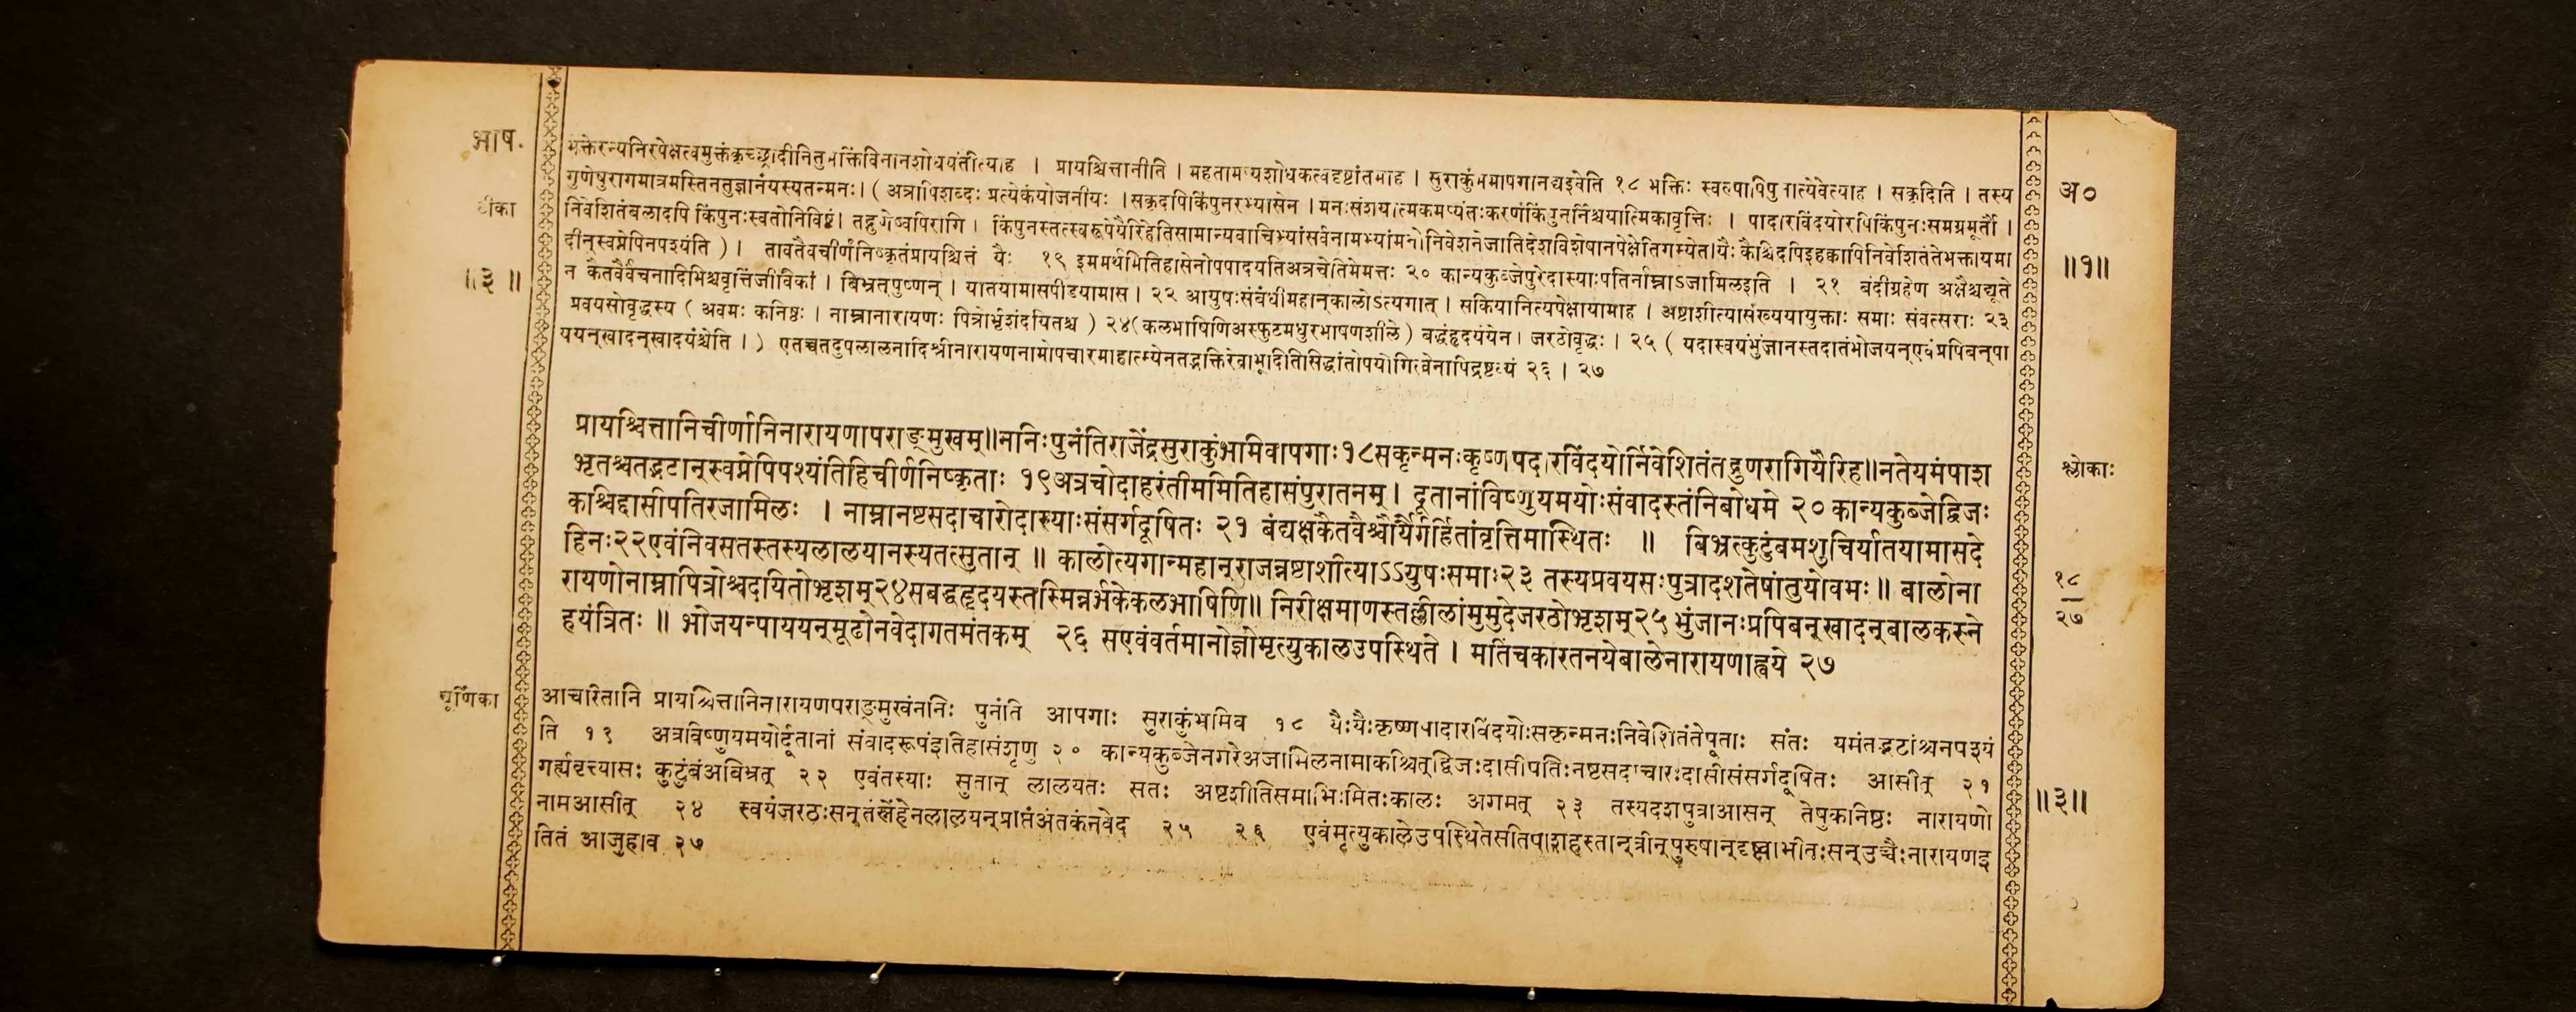 भाष.
भक्तेरन्यनिरपेक्षत्वमुक्तंकृच्छ्रादीनितुभक्तिंविनानशोधयंतीत्याह । प्रायश्चित्तानीति । महतामप्यशोधकत्वदृष्टांतमाह । सुराकुंभमापगानद्यइवेति १८ भक्तिः स्वल्पापिपुनात्येवेत्याह । सकृदिति । तस्य
अ०
गुणेषुरागमात्रमस्तिनतुज्ञानंयस्यतन्मनः। ( अत्रापिशब्दः प्रत्येकंयोजनीयः ।सकृदपि।किंपुनरभ्यासेन ।मनःसंशयात्मकमप्यंतःकरणंकिंपुनर्निश्चयात्मिकावृत्तिः । पादारविंदयोरपिकिंपुनःसमग्रमूर्तौ ।
टीका
निवेशितंबलादपि किंपुनःस्वतोनिविष्टं। तद्गुणेष्वपिरागि । किंपुनस्तत्स्वरूपेयैरिहेतिसामान्यवाचिभ्यांसर्वनामभ्यांमनोनिवेशनेजातिदेशविशेषानपेक्षेतिगम्येत।यैः कैश्चिदपिइहक्वापिनिवेशितंतेभक्तायमा
दीन्स्वप्नेपिनपश्यंति ) । तावतैवचीर्णंनिष्कृतंप्रायश्चित्तं यैः १९ इममर्थमितिहासेनोपपादयतिअत्रचेतिमेमत्तः २० कान्यकुब्जेपुरेदास्याःपतिर्नाम्नाऽजामिलइति । २१ बंदीग्रहेण अक्षैश्चद्यूते
॥१॥
॥३॥
न कैतवैर्वचनादिभिश्चवृत्तिंजीविकां । बिभ्रत्पुष्णन् । यातयामासपीडयामास । २२ आयुषःसंबंधीमहान्कालोऽत्यगात् । सकियानित्यपेक्षायामाह । अष्टाशीत्यासंख्ययायुक्ताः समाः संवत्सराः २३
प्रवयसोवृद्धस्य ( अवमः कनिष्ठः । नाम्नानारायणः पित्रोर्भृशंदयितश्च ) २४(कलभाषिणिअस्फुटमधुरभाषणशीले) बद्धंहृदयंयेन। जरठोवृद्धः । २५ ( यदास्वयंभुंजानस्तदातंभोजयन्एवंप्रपिबन्पा
ययन्खादन्खादयंश्चेति । ) एतच्चतदुपलालनादिश्रीनारायणनामोपचारमाहात्म्येनतद्भक्तिरेवाभूदितिसिद्धांतोपयोगित्वेनापिद्रष्टव्यं २६ । २७
प्रायश्चित्तानिचीर्णानिनारायणापराङ्मुखम्॥ननिःपुनंतिराजेंद्रसुराकुंभामिवापगाः१८सकृन्मनःकृष्णपदारविंदयोर्निवेशितंतद्गुणरागियैरिह॥नतेयमंपाश
भृतश्चतद्भटान्स्वप्नेपिपश्यंतिहिचीर्णनिष्कृताः १९अत्रचोदाहरंतीममितिहासंपुरातनम्। दूतानांविष्णुयमयोःसंवादस्तंनिबोधमे २०कान्यकुब्जेद्विजः
श्लोकाः
काश्चिद्दासीपतिरजामिलः । नाम्नानष्टसदाचारोदास्याःसंसर्गदूषितः २१ बंद्यक्षकैतवैश्चौर्यैर्गर्हितांवृत्तिमास्थितः ॥ बिभ्रत्कुटुंबमशुचिर्यातयामासदे
हिनः२२एवंनिवसतस्तस्यलालयानस्यतत्सुतान् ॥ कालोत्यगान्महान्राजन्नष्टाशीत्याऽऽयुषःसमाः२३ तस्यप्रवयसःपुत्रादशतेषांतुयोवमः॥ बालोना
१८
२७
रायणोनाम्नापित्रोश्चदयितोभृशम्२४सबद्धहृदयस्तस्मिन्नर्भकेकलभाषिणि॥ निरीक्षमाणस्तल्लीलांमुमुदेजरठोभृशम्२५भुंजानःप्रपिबन्खादन्बालकस्ने
हयंत्रितः ॥ भोजयन्पाययन्मूढोनवेदागतमंतकम् २६ सएवंवर्तमानोज्ञोमृत्युकालउपस्थिते । मतिंचकारतनयेबालेनारायणाह्वये २७
चूर्णिका
आचारितानि प्रायश्चित्तानिनारायणपराङ्मुखंननिः पुनंति आपगाः सुराकुंभमिव १८ यैःयैःकृष्णपादारविंदयोःसकृन्मनःनिवेशितंतेपूताः संतः यमंतद्भटांश्चनपश्यं
ति १९ अत्रविष्णुयमयोर्दूतानां संवादरूपंइतिहासंशृणु २० कान्यकुब्जेनगरेअजामिलनामाकश्चित्द्विजःदासीपतिःनष्टसदाचारःदासीसंसर्गदूषितः आसीत् २१
गर्ह्यवृत्त्यासः कुटुंबंअबिभ्रत् २२ एवंतस्याः सुतान् लालयतः सतः अष्टशीतिसमाभिःमितःकालः अगमत् २३ तस्यदशपुत्राआसन् तेषुकनिष्ठः नारायणो
॥३॥
नामआसीत् २४ स्वयंजरठःसन्तंस्नेहेनलालयन्प्राप्तंअंतकंनवेद २५ २६ एवंमृत्युकालेउपस्थितेसतिपाशहस्तान्त्रीन्पुरुषान्दृष्ट्वाभीतःसन्उच्चैःनारायणइ
तितं आजुहाव २७